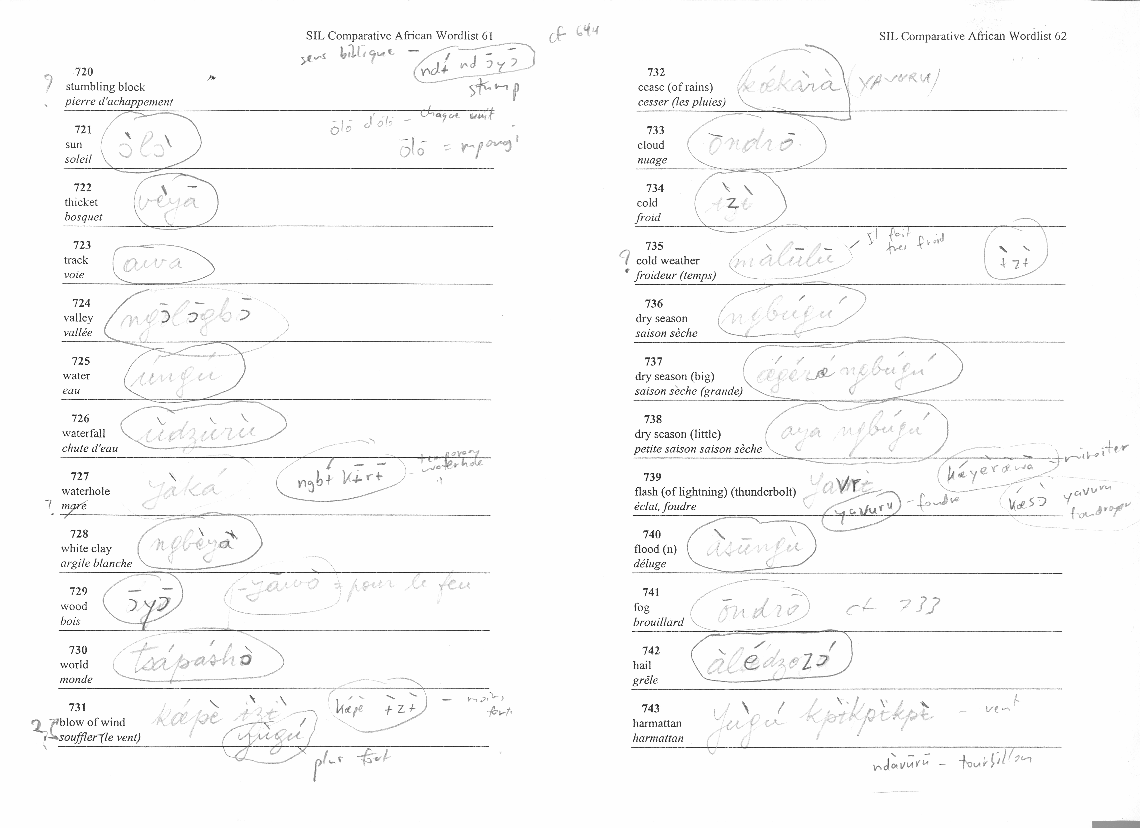 SIL Comparative African Wordlist 61
cf 644
sens biblique –
720
stumbling block
pierre d'achappement
stump
721
sun
soleil
ɔ̀lɔ̀
ōlō = mpongi
722
thicket
bosquet
vèyā
723
track
voie
awa
724
valley
vallée
ngɔ̄lɔ̄gbɔ̄
725
water
eau
úngú
726
waterfall
chute d'eau
ùdzùrù
727
waterhole
mare
yàká
temporary
waterhole
728
white clay
argile blanche
ngbèyà
729
wood
bois
ɔ̄yɔ̄
yāwò = pour le feu
730
world
monde
tsápáshò
731
blow of wind
souffler (le vent)
kæpè ɨ̀zɨ̀
kæpè ɨ̀zɨ̀
– moins
fort
yùgú
plus fort
SIL Comparative African Wordlist 62
732
cease (of rains)
cesser (les pluies)
(YAVURU)
733
cloud
nuage
ōndrō
734
cold
froid
ɨ̀zɨ̀
735
cold weather
froideur (temps)
màlūlū
il fait
très froid
ɨ̀zɨ̀
736
dry season
saison sèche
ngbúgú
737
dry season (big)
saison sèche (grande)
ngbúgú
738
dry season (little)
petite saison saison sèche
aya ngbúgú
739
flash (of lightning) (thunderbolt)
éclat, foudre
káyèrāwa
miroiter
yavuru – foudre
kæsɔ̀ yavuru
740
flood (n)
déluge
àsūngù
741
fog
brouillard
ōndrō cf 733
742
hail
grêle
àlédzɛzɔ́
743
harmattan
harmattan
yùgú kpɨ̀kpɨ̀kpɨ̀ – vent
ndàvūrū – tourbillon